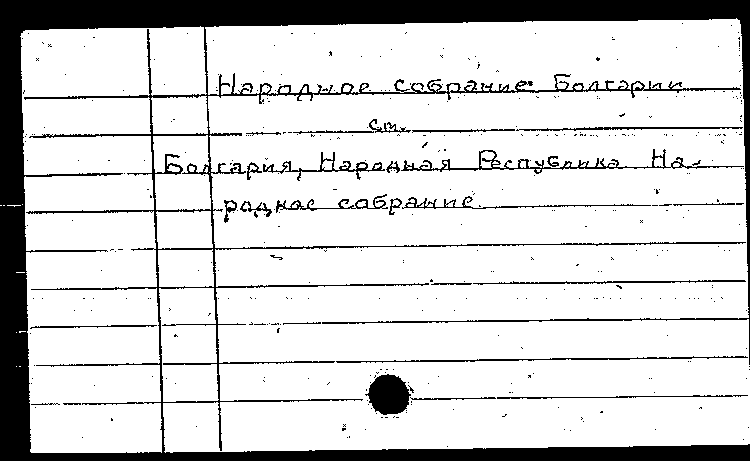 Народное собрание Болгарии
см.
Болгария, Народная Республика На-
родное собрание.